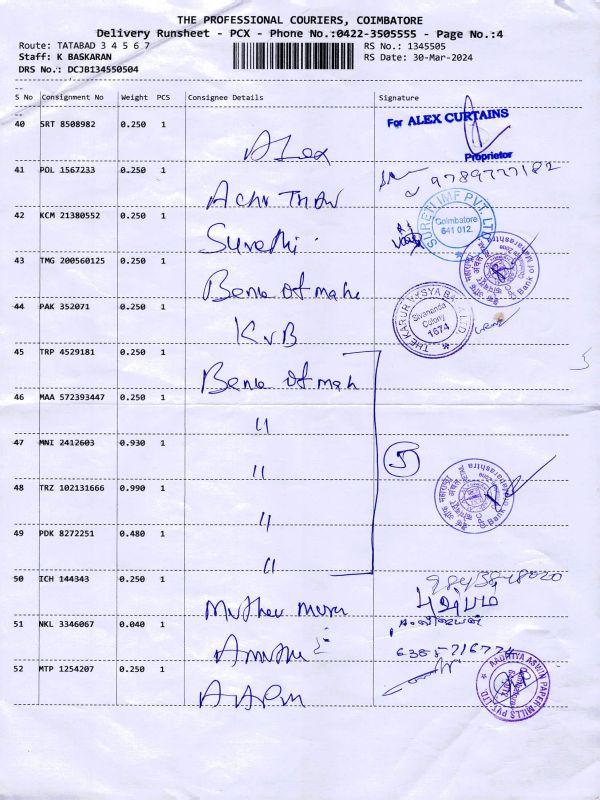 THE PROFESSIONAL COURIERS, COIMBATORE
Delivery Runsheet - PCX - Phone No.:0422-3505555 - Page No.:4
Route: TATABAD 3 4 5 6 7
RS No.: 1345505
Staff: K BASKARAN
RS Date: 30-Mar-2024
DRS No.: DCJB134550504
S No Consignment No Weight PCS Consignee Details Signature
40 SRT 8508982 0.250 1
For ALEX CURTAINS
Alex
Proprietor
41 POL 1567233 0.250 1
9789777182
42 KCM 21380552 0.250 1
SUREN IMF PVT. LTD.
Coimbatore
641 012.
43 TMG 200560125 0.250 1
Bank of Maharashtra
44 PAK 352071 0.250 1
KVB
THE KARUR VYSYA BANK LTD.
Sivananda
Colony
1674
45 TRP 4529181 0.250 1
46 MAA 572393447 0.250 1
"
47 MNI 2412603 0.930 1
"
5
48 TRZ 102131666 0.990 1
"
Bank of Maharashtra
49 PDK 8272251 0.480 1
"
50 ICH 144343 0.250 1
51 NKL 3346067 0.040 1
52 MTP 1254207 0.250 1
AAPM
AADRITYA ASWIN PAPER MILLS PVT. LTD.